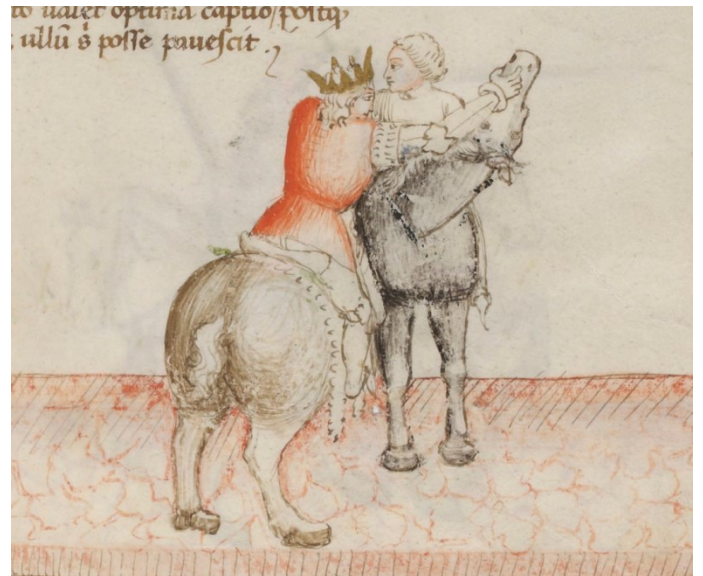 to ualet optima captio / postq̃
ullũ s̃ posse pauescit